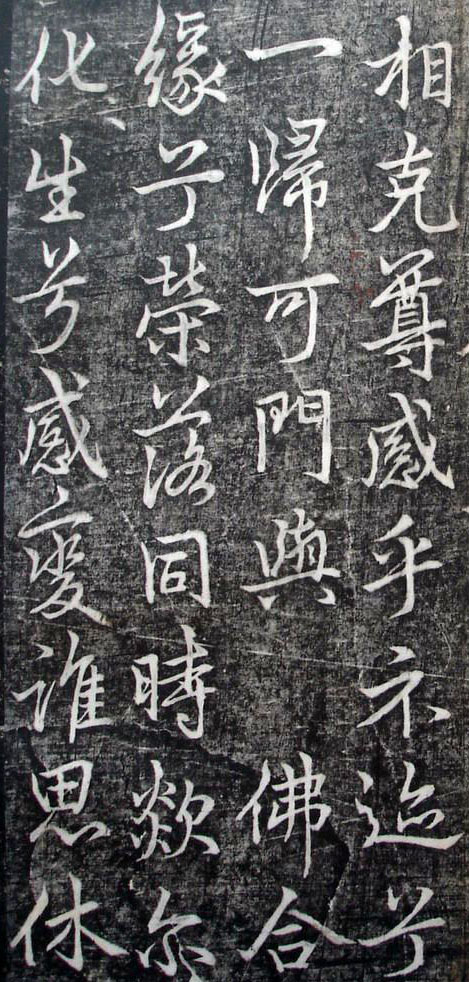 相克尊感乎示迹兮
一歸可門與佛合
緣兮榮落同時歘尔
化〻生兮感變誰思休